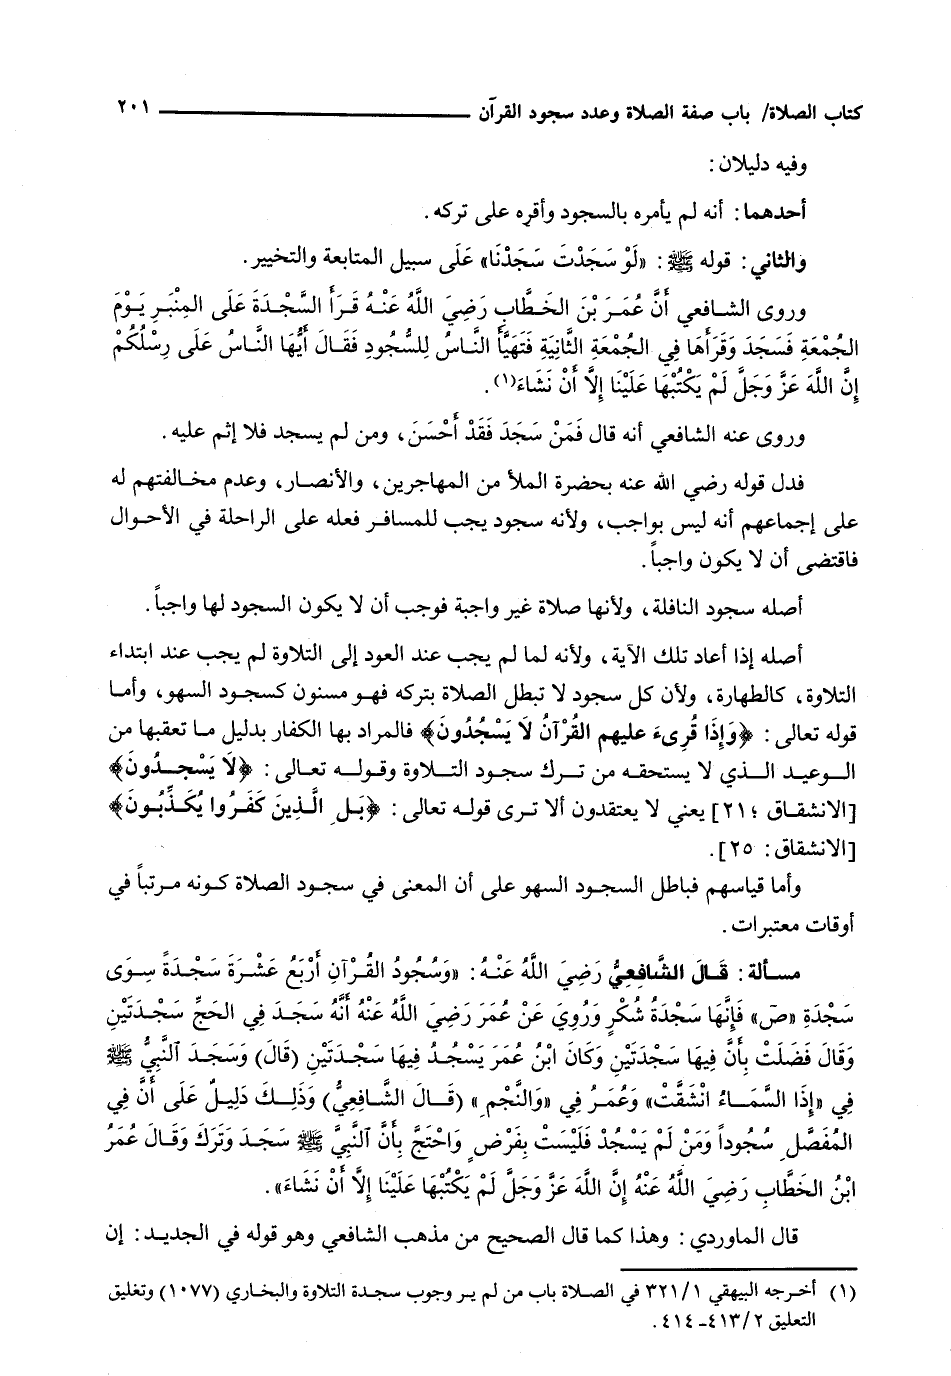 كتاب الصلاة/ باب صفة الصلاة وعدد سجود القرآن ٢٠١
وفيه دليلان :
أحدهما : أنه لم يأمره بالسجود وأقره على تركه .
والثاني : قوله ﷺ : «لَوْ سَجَدْتَ سَجَدْنَا» عَلَى سبيل المتابعة والتخيير .
وروى الشافعي أَنَّ عُمَرَ بْنَ الخَطَّابِ رَضِيَ اللَّهُ عَنْهُ قَرَأَ السَّجْدَةَ عَلَى المِنْبَرِ يَوْمَ
الجُمْعَةِ فَسَجَدَ وَقَرَأَهَا فِي الجُمْعَةِ الثَّانِيَةِ فَتَهَيَّأَ النَّاسُ لِلسُّجُودِ فَقَالَ أَيُّهَا النَّاسُ عَلَى رِسْلِكُمْ
إِنَّ اللَّهَ عَزَّ وَجَلَّ لَمْ يَكْتُبْهَا عَلَيْنَا إِلَّا أَنْ نَشَاءَ(١) .
وروى عنه الشافعي أنه قال فَمَنْ سَجَدَ فَقَدْ أَحْسَنَ ، ومن لم يسجد فلا إثم عليه .
فدل قوله رضي الله عنه بحضرة الملأ من المهاجرين ، والأنصار ، وعدم مخالفتهم له
على إجماعهم أنه ليس بواجب ، ولأنه سجود يجب للمسافر فعله على الراحلة في الأحوال
فاقتضى أن لا يكون واجباً .
أصله سجود النافلة ، ولأنها صلاة غير واجبة فوجب أن لا يكون السجود لها واجباً .
أصله إذا أعاد تلك الآية ، ولأنه لما لم يجب عند العود إلى التلاوة لم يجب عند ابتداء
التلاوة ، كالطهارة ، ولأن كل سجود لا تبطل الصلاة بتركه فهو مسنون كسجود السهو ، وأما
قوله تعالى : ﴿وَإِذَا قُرِىءَ عليهم القُرْآنُ لَا يَسْجُدُونَ﴾ فالمراد بها الكفار بدليل ما تعقبها من
الوعيد الذي لا يستحقه من ترك سجود التلاوة وقوله تعالى : ﴿لَا يَسْجُدُونَ﴾
[الانشقاق ؛ ٢١] يعني لا يعتقدون ألا ترى قوله تعالى : ﴿بَلِ الَّذِينَ كَفَرُوا يُكَذِّبُونَ﴾
[الانشقاق : ٢٥] .
وأما قياسهم فباطل السجود السهو على أن المعنى في سجود الصلاة كونه مرتباً في
أوقات معتبرات .
مسألة : قَالَ الشَّافِعِيُّ رَضِيَ اللَّهُ عَنْهُ : «وَسُجُودُ القُرْآنِ أَرْبَعُ عَشْرَةَ سَجْدَةً سِوَى
سَجْدَةِ «صَ» فَإِنَّهَا سَجْدَةُ شُكْرٍ وَرُوِيَ عَنْ عُمَرَ رَضِيَ اللَّهُ عَنْهُ أَنَّهُ سَجَدَ فِي الحَجِّ سَجْدَتَيْنِ
وَقَالَ فَضَلَتْ بِأَنَّ فِيهَا سَجْدَتَيْنِ وَكَانَ ابْنُ عُمَرَ يَسْجُدُ فِيهَا سَجْدَتَيْنِ (قَالَ) وَسَجَدَ آلنَّبِيُّ ﷺ
فِي «إِذَا السَّمَاءُ انْشَقَّتْ» وَعُمَرُ فِي «وَالنَّجْمِ» (قَالَ الشَّافِعِيُّ) وَذَلِكَ دَلِيلٌ عَلَى أَنَّ فِي
المُفَصَّلِ سُجُوداً وَمَنْ لَمْ يَسْجُدْ فَلَيْسَتْ بِفَرْضٍ وَاحْتَجَّ بِأَنَّ آلنَّبِيَّ ﷺ سَجَدَ وَتَرَكَ وَقَالَ عُمَرُ
ابْنُ الخَطَّابِ رَضِيَ اللَّهُ عَنْهُ إِنَّ اللَّهَ عَزَّ وَجَلَّ لَمْ يَكْتُبْهَا عَلَيْنَا إِلَّا أَنْ نَشَاءَ» .
قال الماوردي : وهذا كما قال الصحيح من مذهب الشافعي وهو قوله في الجديد : إن
(١) أخرجه البيهقي ٣٢١/١ في الصلاة باب من لم ير وجوب سجدة التلاوة والبخاري (١٠٧٧) وتغليق
التعليق ٤١٣/٢ ـ ٤١٤ .